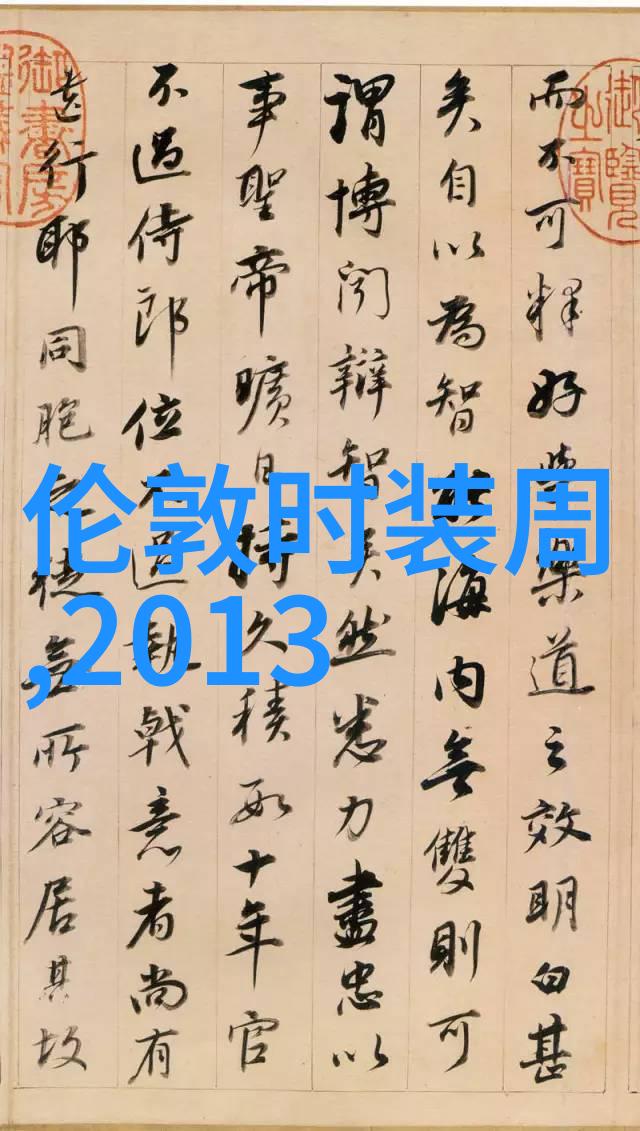 而不可釋好學樂道之效明白甚
矣自以為智海内無雙則可
謂博聞辯智矣然悉力盡忠以
事聖帝曠日持久積數十年官
不過侍郎位不過執戟意者尚有
遺行耶同胞之徒無所容居其故
御覽之寶
御書房
伦敦时装周
,2013